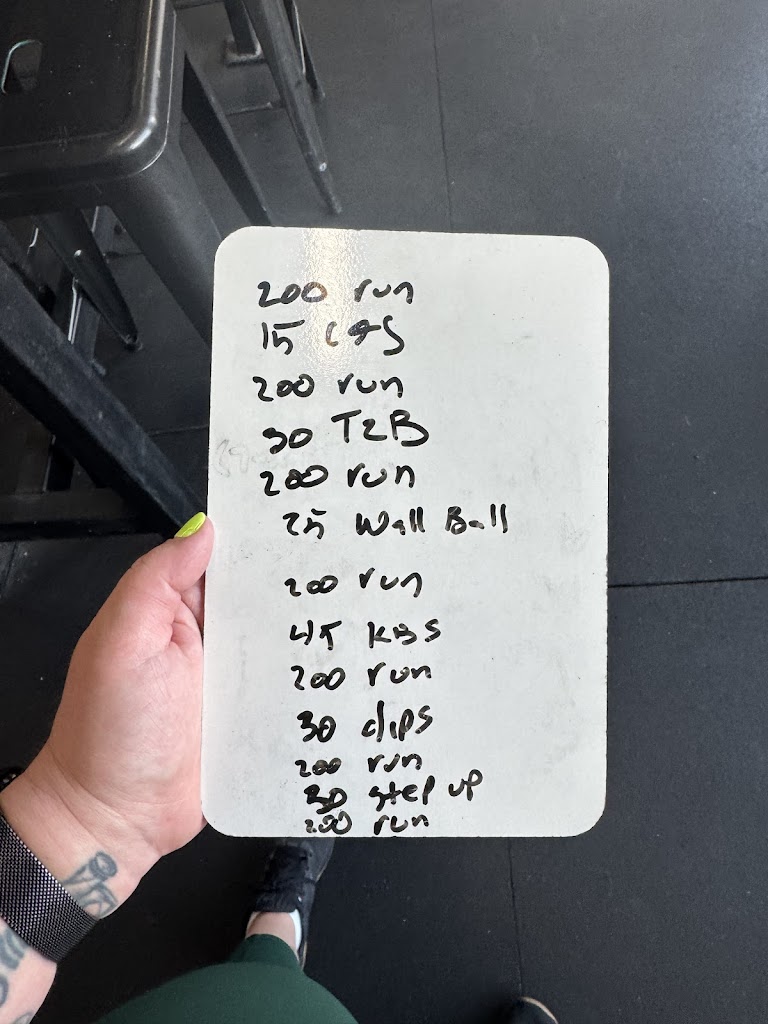 200 run
15
200 run
30 T2B
200 run
25 Wall Ball
200 run
45 KBS
200 run
30 dips
200 run
30 step up
200 run